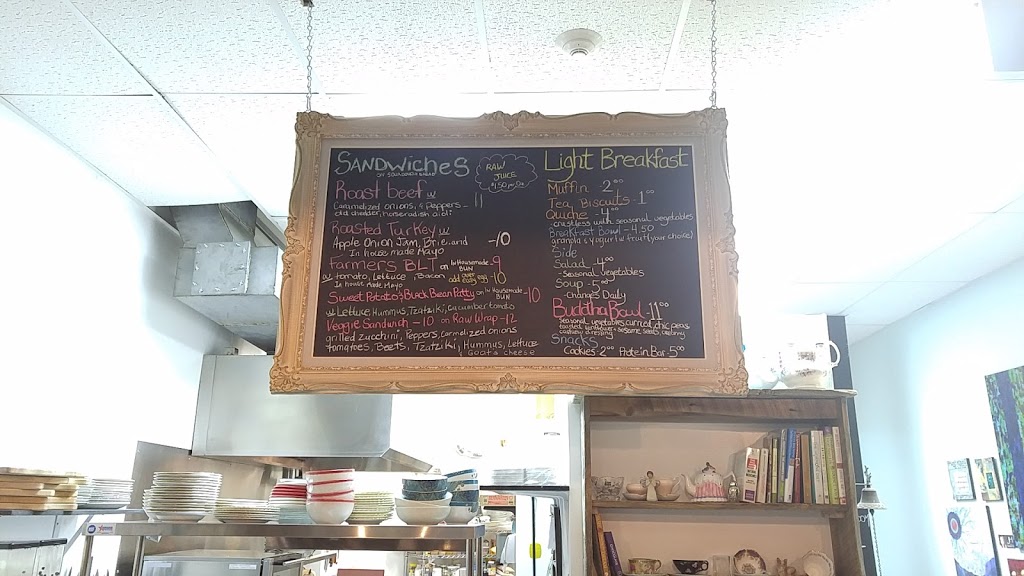 SANDWicHeS
ON SOURDOUGH BREAD
RAW
JUICE
Roast beef w
Caramelized onions, & Peppers - 11
old cheddar, horseradish aioli
Roasted Turkey w
Apple Onion Jam, Brie, and -10
In house made Mayo
Farmers BLT on In Housemade BUN -9
w tomato, Lettuce, Bacon add over easy egg -10
In house made Mayo
Sweet Potato & Black Bean Patty on In Housemade BUN -10
w Lettuce, Hummus, Tzatziki, Cucumber tomato
Veggie Sandwich - 10 on Raw Wrap - 12
grilled Zucchini, Peppers Carmelized onions
tomatoes, Beets, Tzatziki, Hummus, Lettuce
Goats cheese
Light Breakfast
Muffin - 2.00
Tea Biscuits - 1.00
Quiche - 4.00
crustless with seasonal vegetables
Breakfast Bowl - 4.50
granola & yogurt w fruit (your choice)
Side
Salad - 4.00
- Seasonal vegetables
Soup - 5.00
- Changes Daily
Buddha Bowl - 11.00
Seasonal vegetables, chic peas
Snacks
Cookies - 2.00 Protein Bar - 5.00